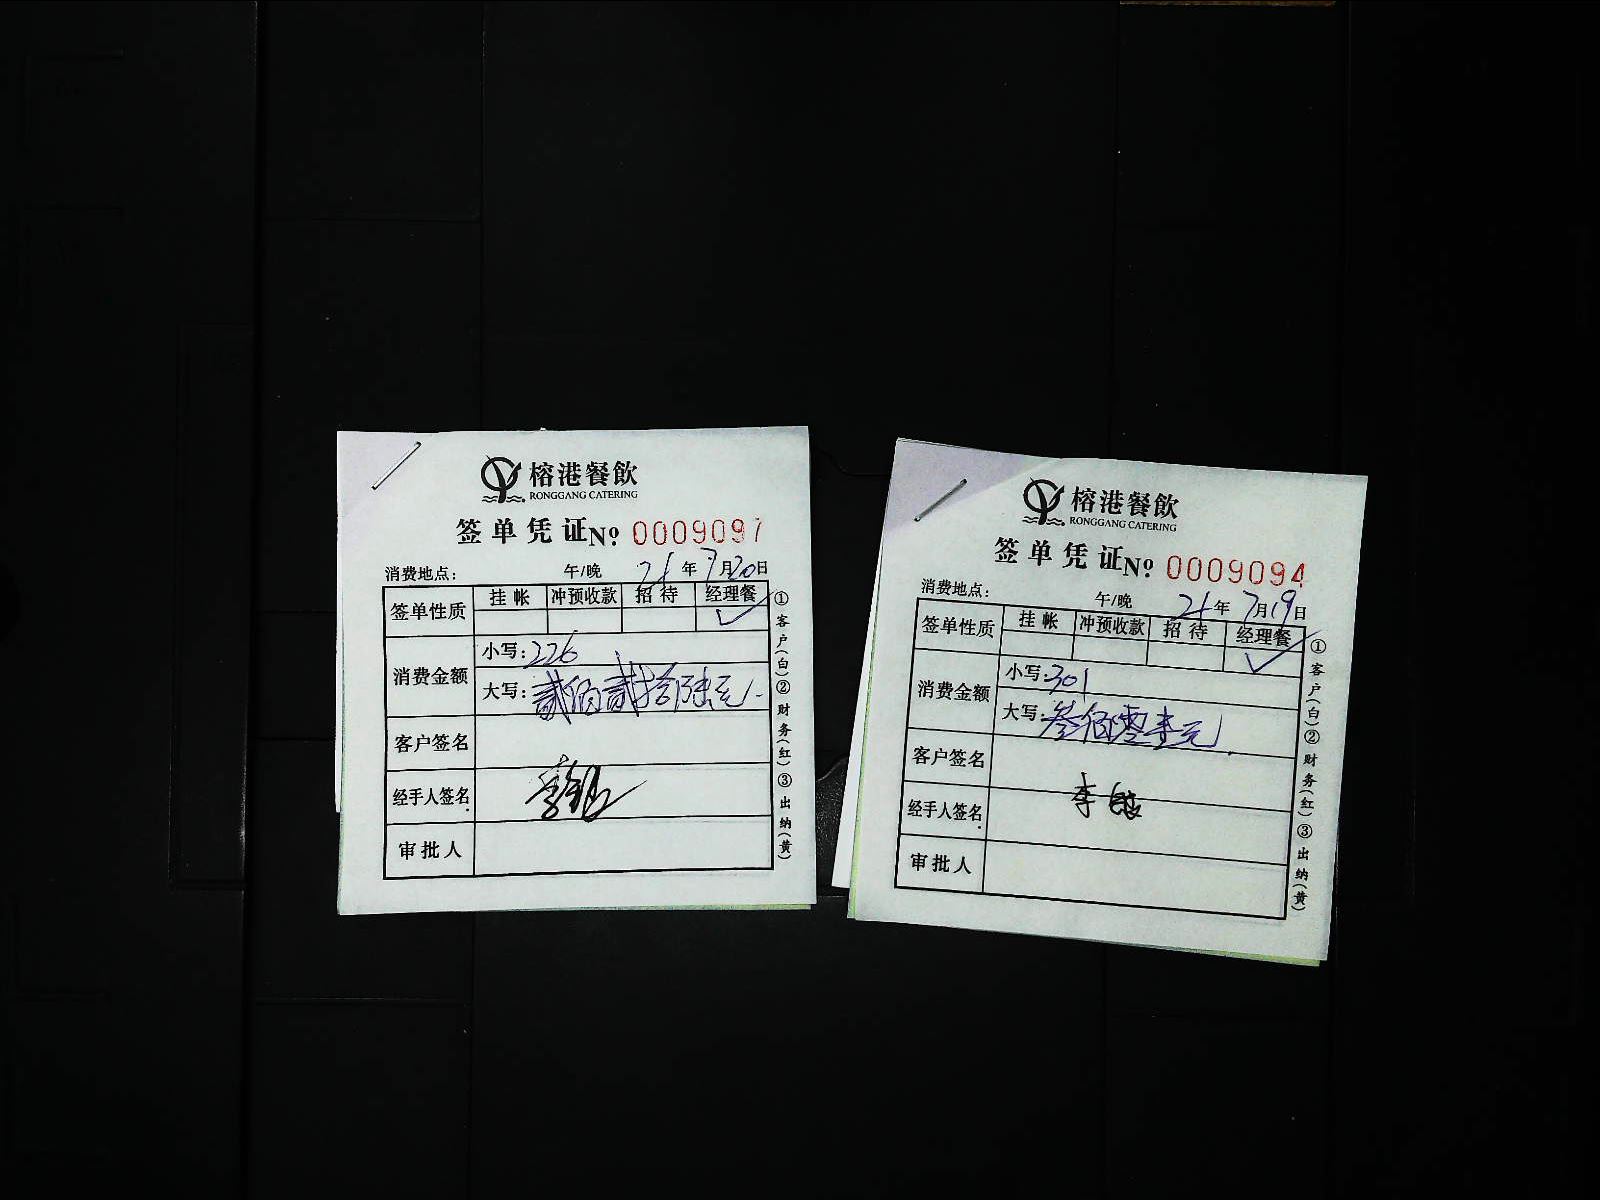 榕港餐飲
RONGGANG CATERING
签单凭证 No. 0009097
消费地点: 午/晚 21年7月20日
签单性质 挂帐 冲预收款 招待 经理餐
✓
消费金额 小写: 226
大写: 贰佰贰拾陆元
客户签名
经手人签名
审批人
①客户(白)②财务(红)③出纳(黄)
榕港餐飲
RONGGANG CATERING
签单凭证 No. 0009094
消费地点: 午/晚 21年7月19日
签单性质 挂帐 冲预收款 招待 经理餐
✓
消费金额 小写: 301
大写: 叁佰零壹元
客户签名
经手人签名 李
审批人
①客户(白)②财务(红)③出纳(黄)